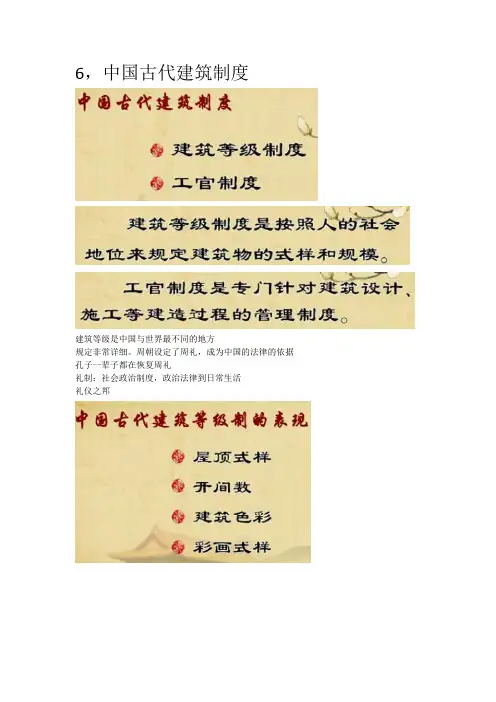 6，中国古代建筑制度
中国古代建筑制度
建筑等级制度
工官制度
建筑等级制度是按照人的社会
地位来规定建筑物的式样和规模。
工官制度是专门针对建筑设计、
施工等建造过程的管理制度。
建筑等级是中国与世界最不同的地方
规定非常详细。周朝设定了周礼，成为中国的法律的依据
孔子一辈子都在恢复周礼
礼制：社会政治制度，政治法律到日常生活
礼仪之邦
中国古代建筑等级制的表现
屋顶式样
开间数
建筑色彩
彩画式样